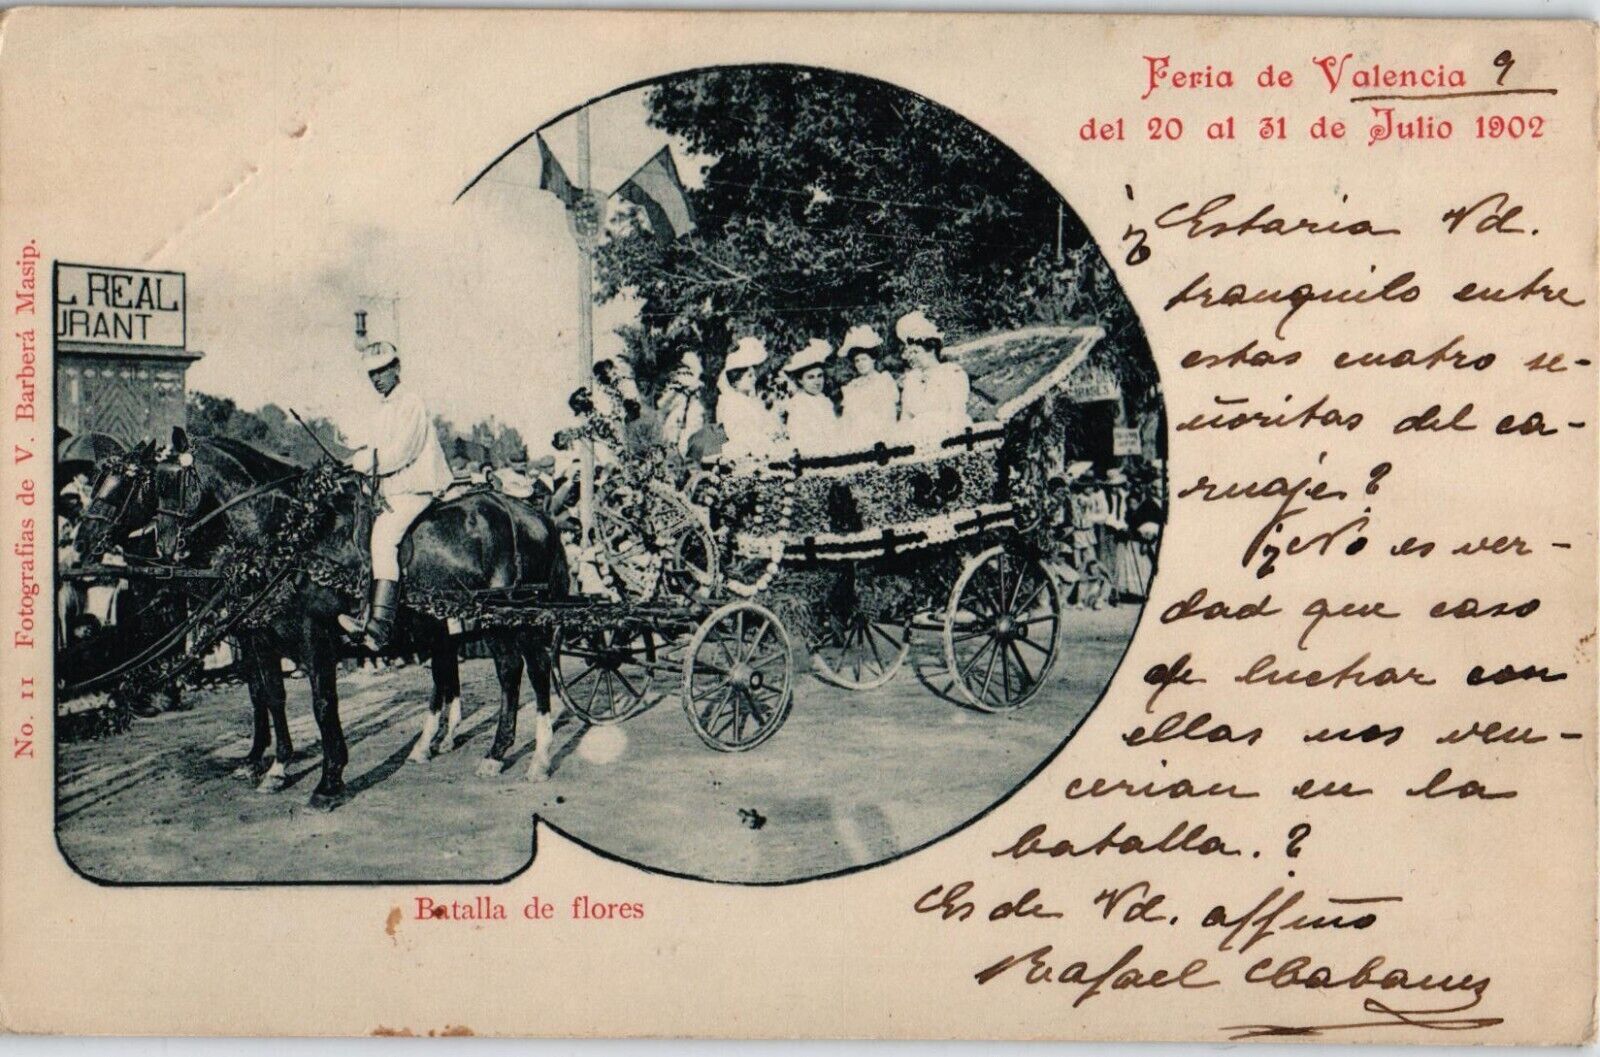 Feria de Valencia 9
del 20 al 31 de Julio 1902
¿Estaria Vd.
tranquilo entre
estas cuatro se-
ñoritas del ca-
rruaje?
¿No es ver-
dad que caso
de luchar con
ellas nos ven-
cerian en la
batalla.?
Es de Vd. affmo
Rafael
L REAL
URANT
Batalla de flores
No. 11 Fotografias de V. Barberá Masip.